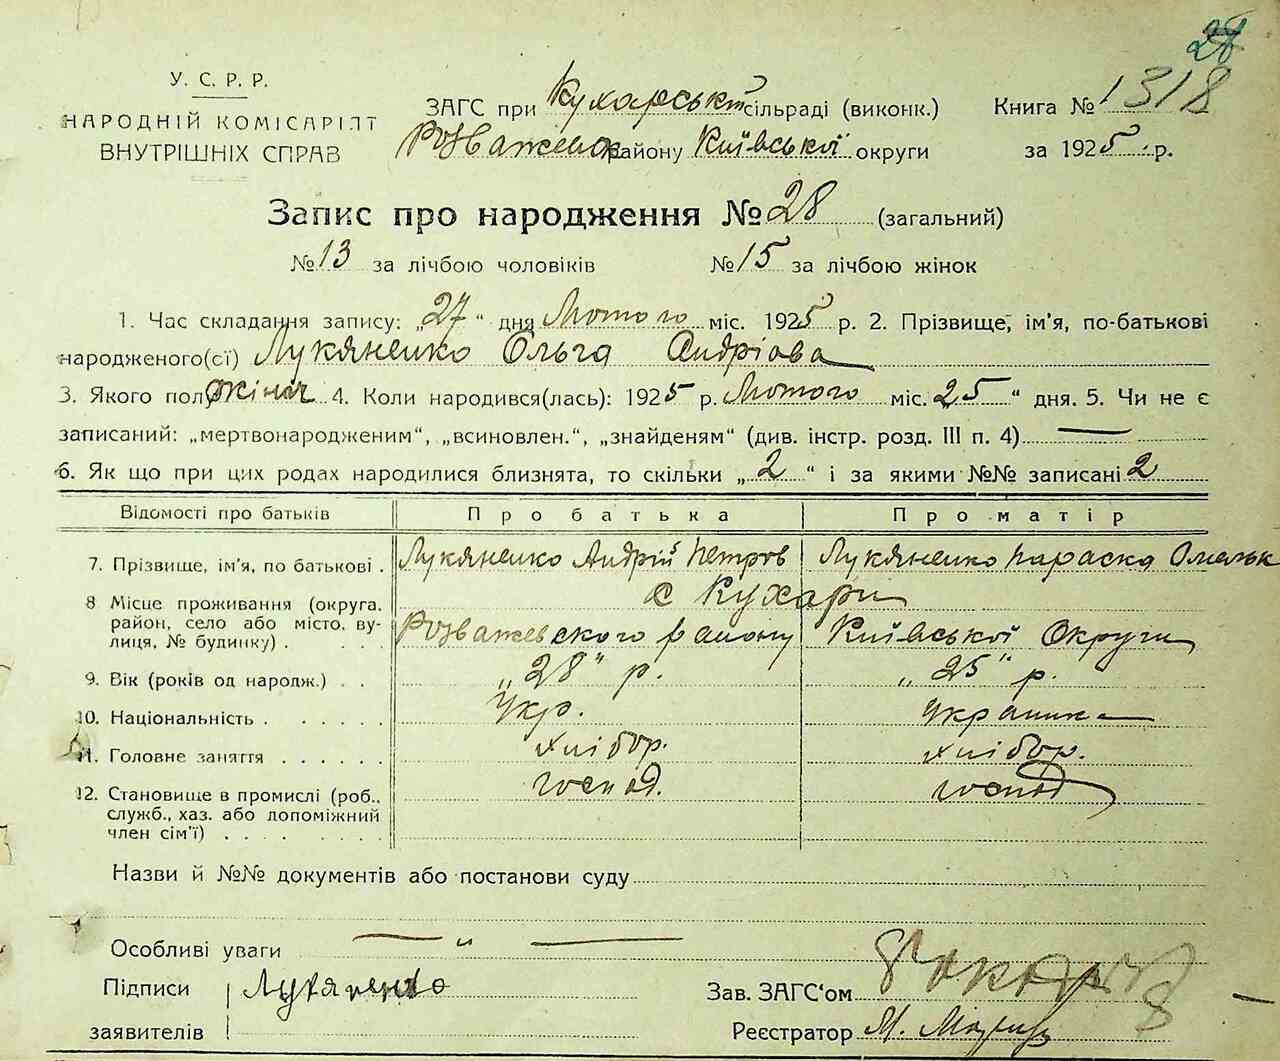 28
У. С. Р. Р.
НАРОДНІЙ КОМІСАРІЯТ
ВНУТРІШНІХ СПРАВ
ЗАГС при Кухарській сільраді (виконк.)
Розважевск району Київської округи
Книга № 1318
за 1925 р.
Запис про народження № 28 (загальний)
№ 13 за лічбою чоловіків № 15 за лічбою жінок
1. Час складання запису: „27“ дня Лютого міс. 1925 р. 2. Прізвище, ім'я, по-батькові
народженого(сї) Лукяненко Ольга Андріова
3. Якого полу жіноч 4. Коли народився(лась): 1925 р. Лютого міс. 25 “ дня. 5. Чи не є
записаний: „мертвонародженим“, „всиновлен.“, „знайденям“ (див. інстр. розд. III п. 4) —
6. Як що при цих родах народилися близнята, то скільки „2“ і за якими №№ записані 2
Відомості про батьків Про батька Про матір
7. Прізвище, ім'я, по батькові . Лукяненко Андрій Петров Лукяненко Параска Омельк
8 Місце проживання (округа, район, село або місто, вулиця, № будинку) . . . . с Кухари
Розважевского району Київської Округи
9. Вік (років од народж.) . . „28“ р. „25“ р.
10. Національність . . . . . . Укр. украинка
11. Головне заняття . . . . . . хлібор. хлібор.
12. Становище в промислі (роб., служб., хаз. або допоміжний член сім'ї) . . . . . . . господ. господ
Назви й №№ документів або постанови суду
Особливі уваги — „ —
Підписи Лукяненко
заявителів
Зав. ЗАГС'ом
Реєстратор М.